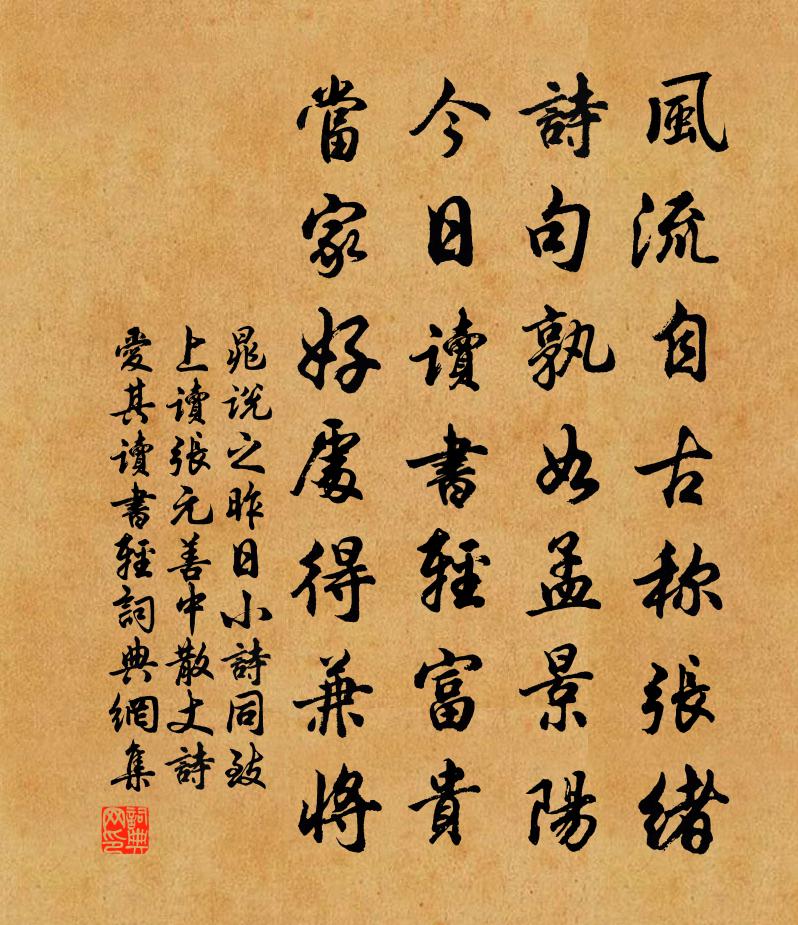 風流自古称張緒
詩句孰如孟景陽
今日讀書輕富貴
當家好處得兼將
晁説之昨日小詩同致
上讀張元善中散丈詩
愛其讀書輕詞典網集
詞典
网印